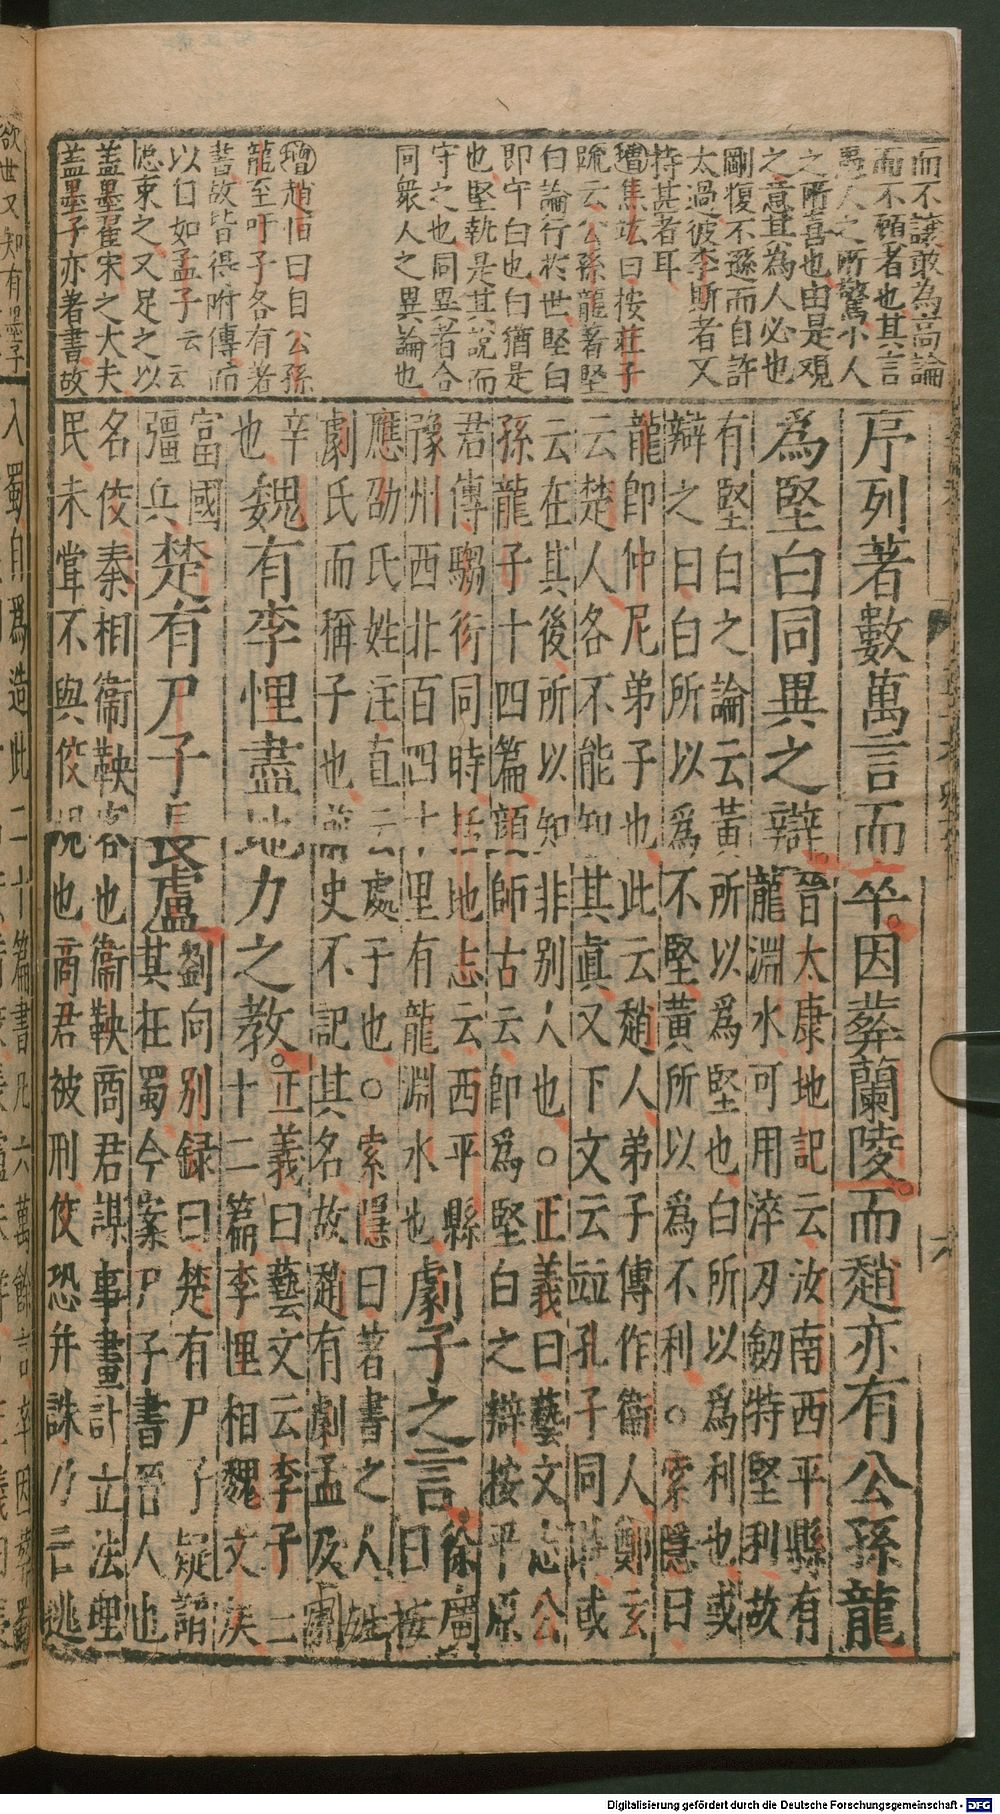 而不讓敢為高論
而不顧者也其言
愚人之所驚小人
之所喜也由是觀
之意其為人必也
剛復不遜而自許
太過彼李斯者又
特甚者耳
增焦竑曰按莊子
疏云公孫龍著堅
白論行於世堅白
即守白也白猶是
也堅執是其說而
守之也同異者合
同衆人之異論也
增趙恒曰自公孫
龍至吁子各有著
書故皆得附傳而
以曰如孟子云云
總束之又足之以
蓋墨翟宋之大夫
蓋墨子亦著書故
序列著數萬言而卒。因葬蘭陵。而趙亦有公孫龍
爲堅白同異之辯。
晉太康地記云汝南西平縣有
龍淵水可用淬刀劒特堅利故
有堅白之論云黃所以爲堅也白所以爲利也或
辯之曰白所以爲不堅黃所以爲不利○索隱曰
龍即仲尼弟子也此云趙人弟子傳作衞人鄭玄
云楚人各不能知其眞又下文云竝孔子同時或
云在其後所以知非别人也○正義曰藝文志公
孫龍子十四篇顔師古云即爲堅白之辯按平原
君傳騶衍同時括地志云西平縣
豫州西北百四十里有龍淵水也
劇子之言。
徐廣
曰按
應劭氏姓注直云處于也○索隱曰著書之人姓
劇氏而稱子也前史不記其名故趙有劇孟及劇
辛
也
魏有李悝盡地力之教。
正義曰藝文云李子二
十二篇李悝相魏文侯
富國
彊兵
楚有尸子長盧
劉向别録曰楚有尸子疑謂
其在蜀今案尸子書晉人也
名佼秦相衞鞅客也衞鞅商君謀事畫計立法理
民未甞不與佼規也商君被刑佼恐并誅乃亡逃
入蜀自爲造此二十篇書凡六萬餘言卒因葬蜀
Digitalisierung gefördert durch die Deutsche Forschungsgemeinschaft - DFG